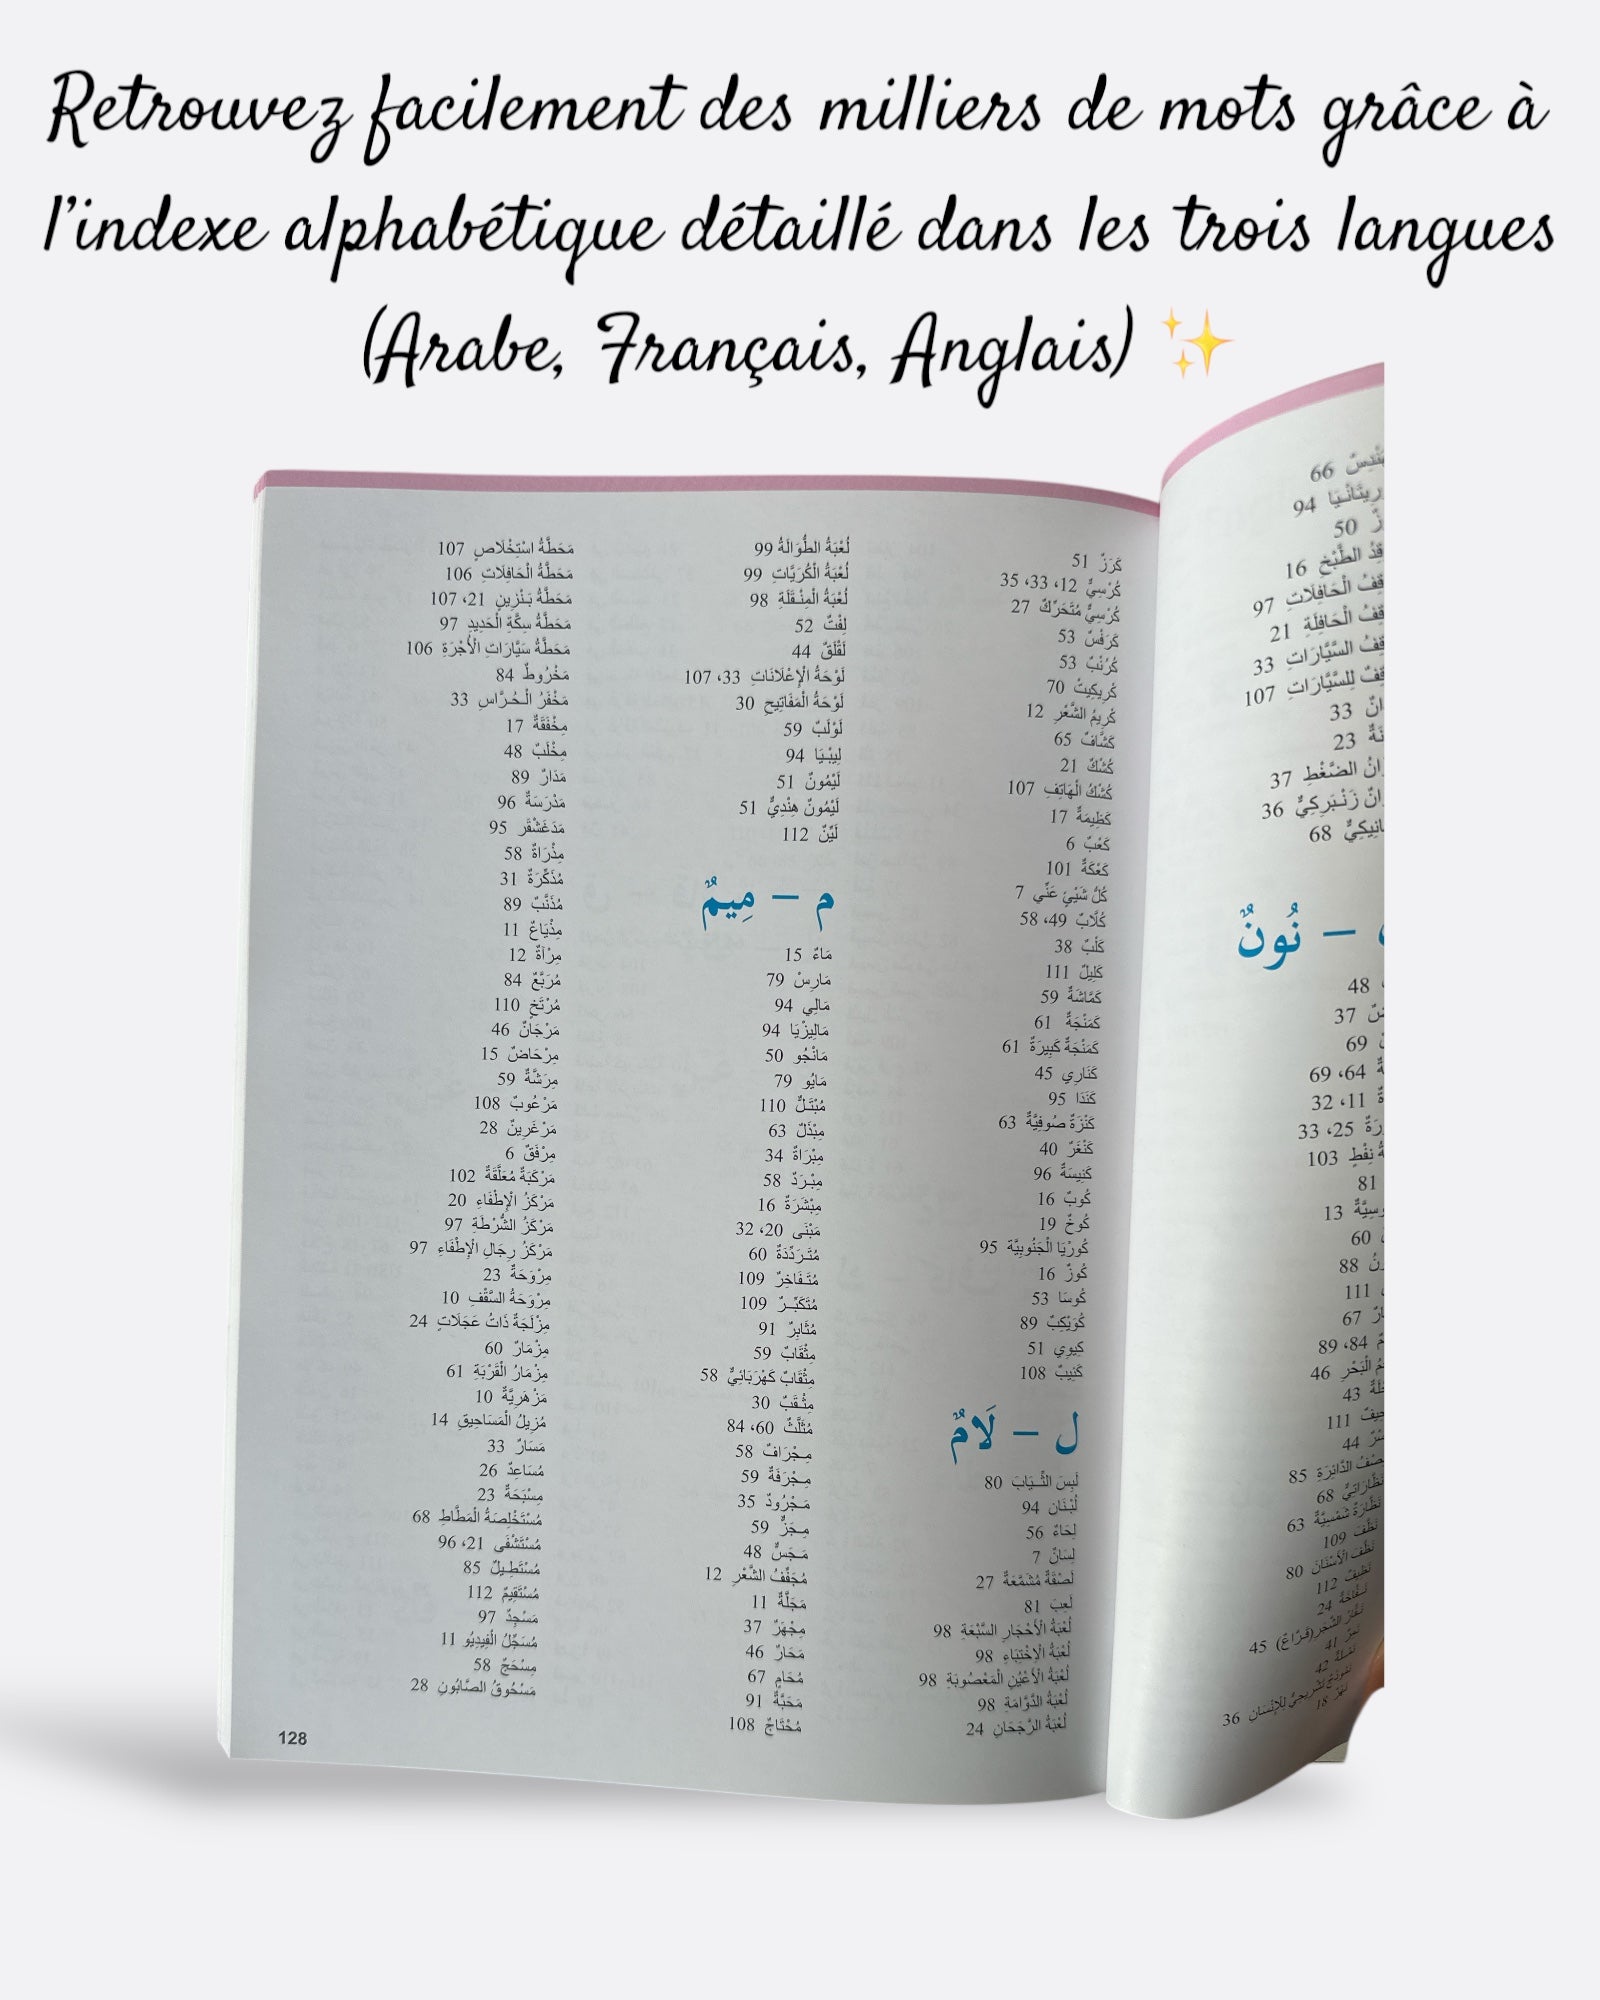 Retrouvez facilement des milliers de mots grâce à
l'indexe alphabétique détaillé dans les trois langues
(Arabe, Français, Anglais) ✨
كَرَزٌ 51
كُرْسِيٌّ 12، 33، 35
كُرْسِيٌّ مُتَحَرِّكٌ 27
كَرَفْسٌ 53
كُرُنْبٌ 53
كْرِيكِيتْ 70
كْرِيمُ الشَّعْرِ 12
كَشَّافٌ 65
كُشْكٌ 21
كُشْكُ الْهَاتِفِ 107
كَظِيمَةٌ 17
كَعْبٌ 6
كَعْكَةٌ 101
كُلُّ شَيْئٍ عَنِّي 7
كُلَّابٌ 49، 58
كَلْبٌ 38
كَلِيلٌ 111
كَمَّاشَةٌ 59
كَمَنْجَةٌ 61
كَمَنْجَةٌ كَبِيرَةٌ 61
كَنَارِي 45
كَنَدَا 95
كَنْزَةٌ صُوفِيَّةٌ 63
كَنْغَرٌ 40
كَنِيسَةٌ 96
كُوبٌ 16
كُوخٌ 19
كُورْيَا الْجَنُوبِيَّة 95
كُوزٌ 16
كُوسَا 53
كُوَيْكِبٌ 89
كِيوِي 51
كَئِيبٌ 108
ل – لَامٌ
لَبِسَ الثِّيَابَ 80
لُبْنَان 94
لِحَاءٌ 56
لِسَانٌ 7
لَصْقَةٌ مُشَمَّعَةٌ 27
لَعِبَ 81
لُعْبَةُ الْأَحْجَارِ السَّبْعَةِ 98
لُعْبَةُ الْإِخْتِبَاءِ 98
لُعْبَةُ الْأَعْيُنِ الْمَعْصُوبَةِ 98
لُعْبَةُ الدَّوَّامَةِ 98
لُعْبَةُ الرَّجَحَانِ 24
لُعْبَةُ الطَّوَالَةُ 99
لُعْبَةُ الْكُرَيَّاتِ 99
لُعْبَةُ الْمِنْقَلَةِ 98
لِفْتٌ 52
لَقْلَقٌ 44
لَوْحَةُ الْإِعْلَانَاتِ 33، 107
لَوْحَةُ الْمَفَاتِيحِ 30
لَوْلَبٌ 59
لِيبْيَا 94
لَيْمُونٌ 51
لَيْمُونٌ هِنْدِيٌّ 51
لَيِّنٌ 112
م – مِيمٌ
مَاءٌ 15
مَارِسْ 79
مَالِي 94
مَالِيزْيَا 94
مَانْجُو 50
مَايُو 79
مُبْتَلٌّ 110
مِبْذَلٌ 63
مِبْرَاةٌ 34
مِبْرَدٌ 58
مِبْشَرَةٌ 16
مَبْنَى 20، 32
مُتَرَدِّدَةٌ 60
مُتَفَاخِرٌ 109
مُتَكَبِّرٌ 109
مُثَابِرٌ 91
مِثْقَابٌ 59
مِثْقَابٌ كَهْرَبَائِيٌّ 58
مِثْقَبٌ 30
مُثَلَّثٌ 60، 84
مِجْرَافٌ 58
مِجْرَفَةٌ 59
مَجْرُودٌ 35
مِجَزٌّ 59
مَجَسٌّ 48
مُجَفِّفُ الشَّعْرِ 12
مَجَلَّةٌ 11
مِجْهَرٌ 37
مَحَارٌ 46
مُحَامٍ 67
مَحَبَّةٌ 91
مُحْتَاجٌ 108
مَحَطَّةُ اسْتِخْلَاصٍ 107
مَحَطَّةُ الْحَافِلَاتِ 106
مَحَطَّةُ بَنْزِينٍ 21، 107
مَحَطَّةُ سِكَّةِ الْحَدِيدِ 97
مَحَطَّةُ سَيَّارَاتِ الْأُجْرَةِ 106
مَخْرُوطٌ 84
مَخْفَرُ الْحُرَّاسِ 33
مِخْفَقَةٌ 17
مِخْلَبٌ 48
مَدَارٌ 89
مَدْرَسَةٌ 96
مَدَغَشْقَر 95
مِذْرَاةٌ 58
مُذَكِّرَةٌ 31
مُذَنَّبٌ 89
مِذْيَاعٌ 11
مِرْآةٌ 12
مُرَبَّعٌ 84
مُرْتَخٍ 110
مَرْجَانٌ 46
مِرْحَاضٌ 15
مِرَشَّةٌ 59
مَرْعُوبٌ 108
مَرْغَرِينٌ 28
مِرْفَقٌ 6
مَرْكَبَةٌ مُعَلَّقَةٌ 102
مَرْكَزُ الْإِطْفَاءِ 20
مَرْكَزُ الشُّرْطَةِ 97
مَرْكَزُ رِجَالِ الْإِطْفَاءِ 97
مِرْوَحَةٌ 23
مِرْوَحَةُ السَّقْفِ 10
مِزْلَجَةٌ ذَاتُ عَجَلَاتٍ 24
مِزْمَارٌ 60
مِزْمَارُ الْقَرْبَةِ 61
مَزْهَرِيَّةٌ 10
مُزِيلُ الْمَسَاحِيقِ 14
مَسَارٌ 33
مُسَاعِدٌ 26
مِسْبَحَةٌ 23
مُسْتَخْلِصَةُ الْمَطَّاطِ 68
مُسْتَشْفَى 21، 96
مُسْتَطِيلٌ 85
مُسْتَقِيمٌ 112
مَسْجِدٌ 97
مُسَجِّلُ الْفِيدِيُو 11
مِسْحَجٌ 58
مَسْحُوقُ الصَّابُونِ 28
128
66
94
50
الطَّبْخِ 16
الْحَافِلَاتِ 97
الْحَافِلَةِ 21
السَّيَّارَاتِ 33
لِلسَّيَّارَاتِ 107
33
23
الضَّغْطِ 37
زَنْبَرَكِيٌّ 36
68
– نُونٌ
48
37
69
64، 69
11، 32
25، 33
نِفْطٍ 103
81
13
60
88
111
67
84، 89
الْبَحْرِ 46
43
111
44
الدَّائِرَةِ 85
68
نَظَّارَةٌ شَمْسِيَّةٌ 63
نَظَّفَ 109
نَظَّفَ الْأَسْنَانَ 80
نَظِيفٌ 112
24
45
41
42
36
18